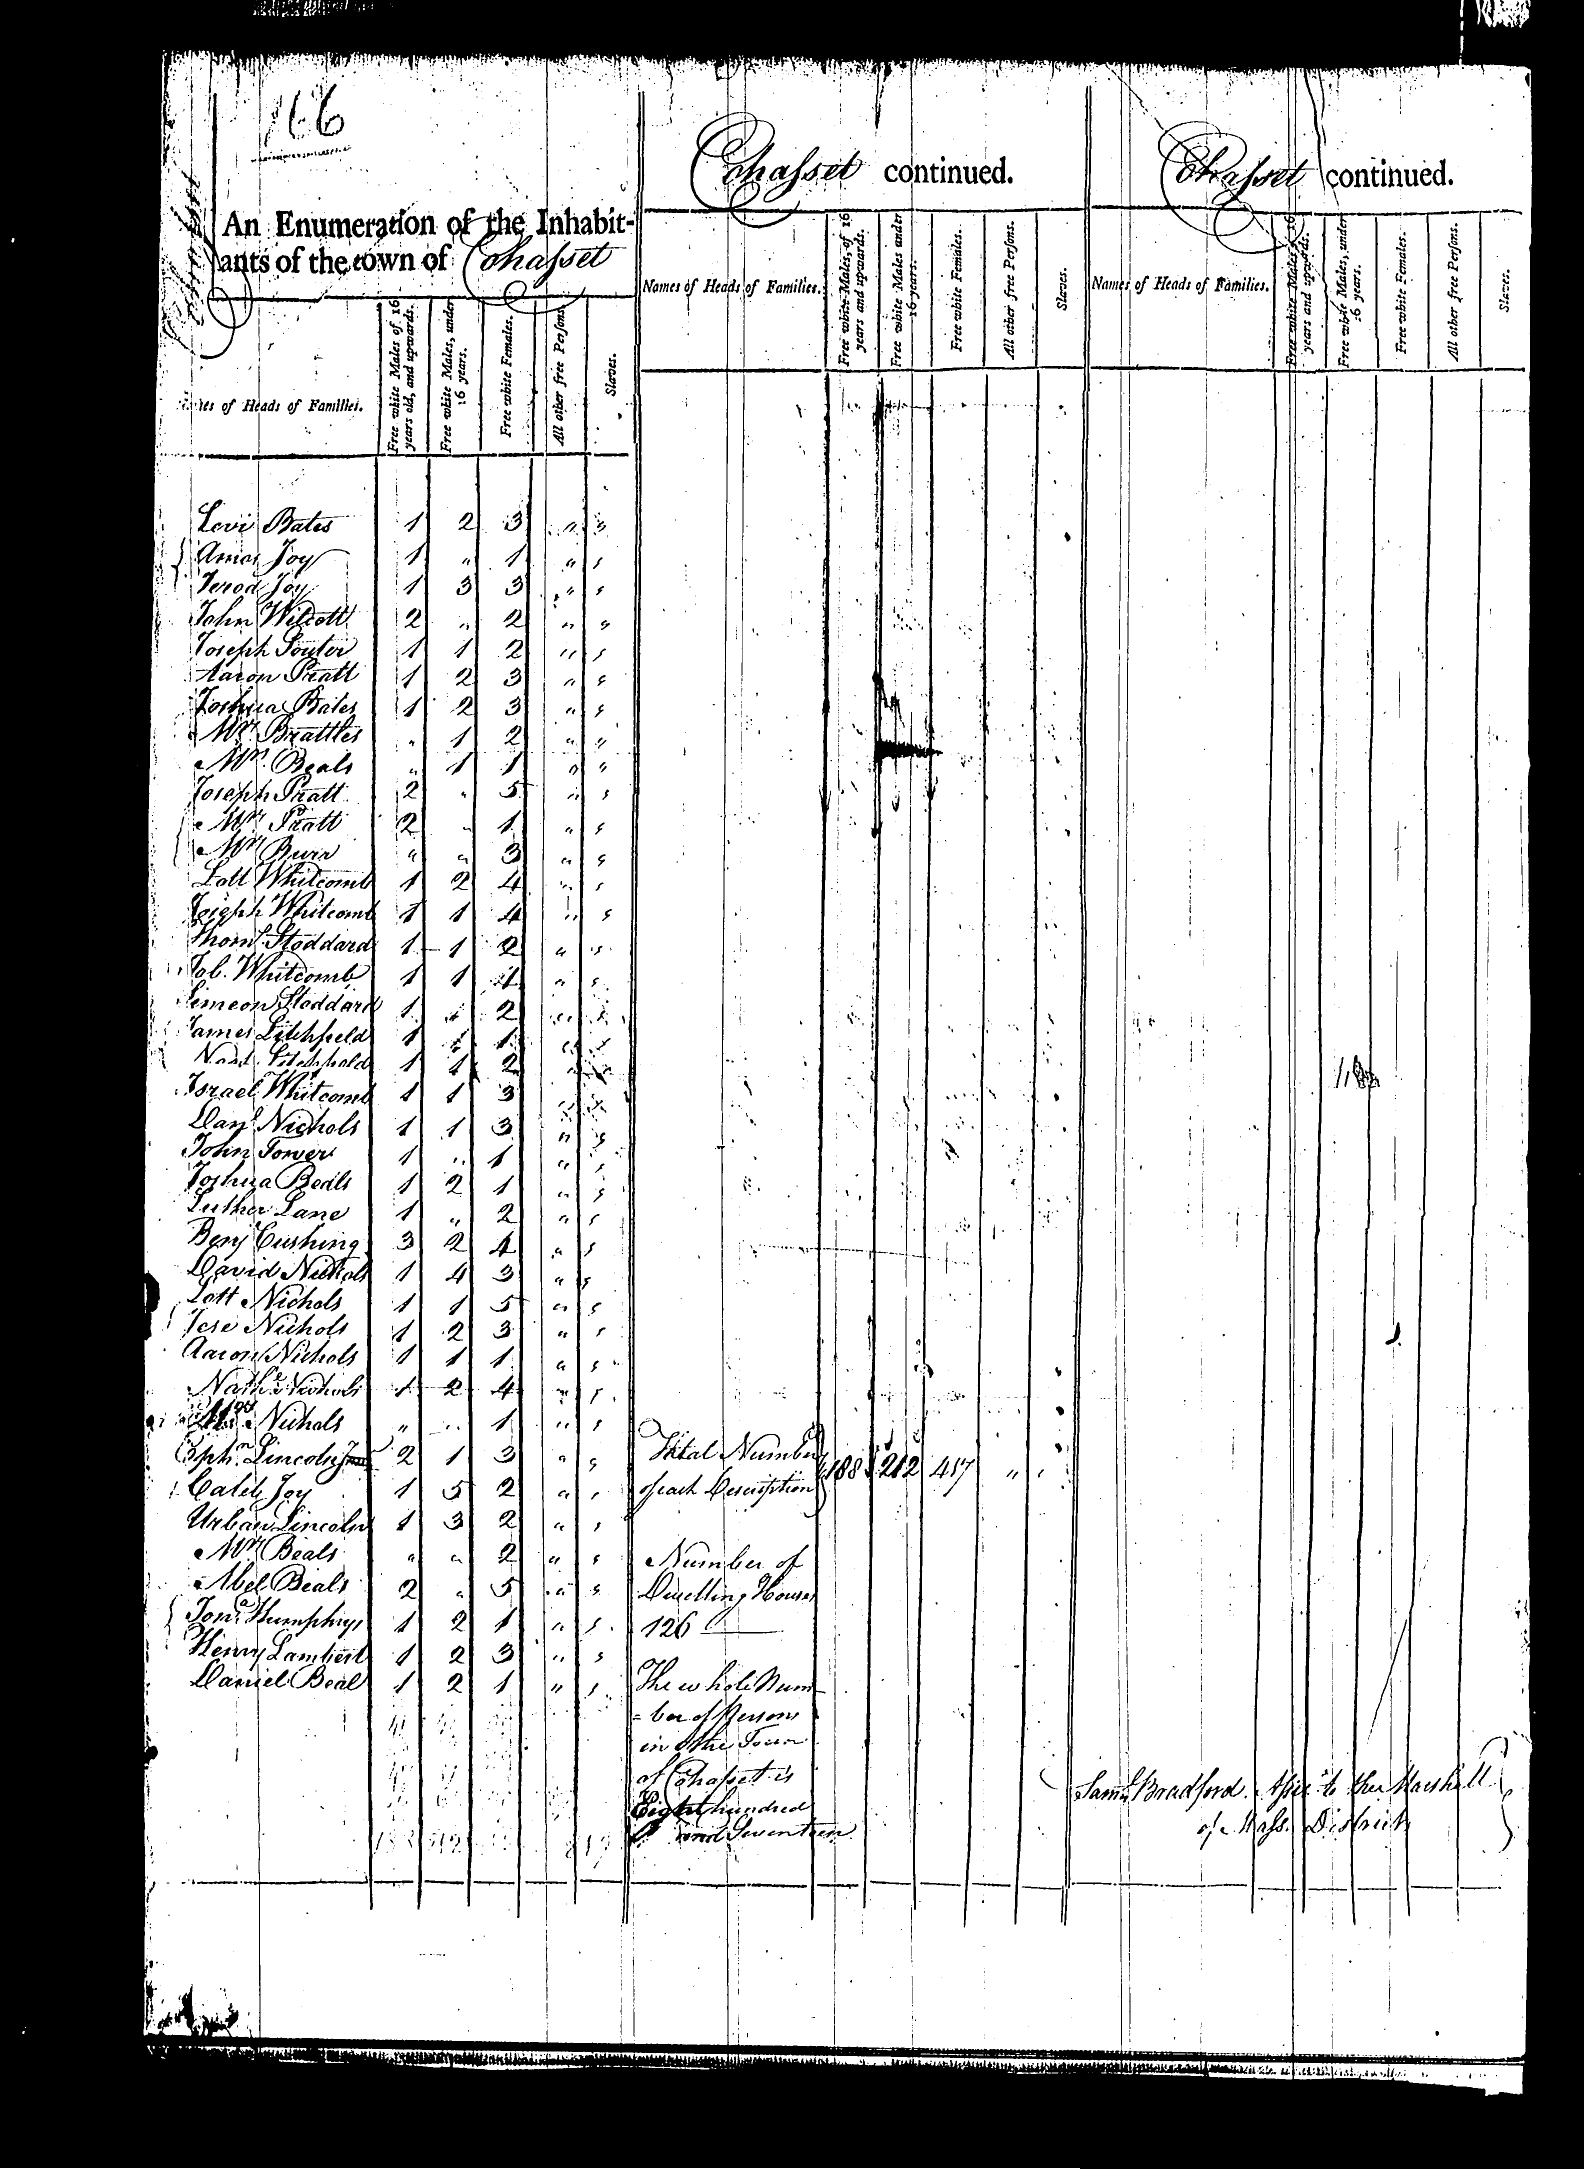 166
An Enumeration of the Inhabit-
ants of the town of Cohasset
Names of Heads of Families.
Free white Males of 16 years old, and upwards.
Free white Males, under 16 years.
Free white Females.
All other free Persons.
Slaves.
Levi Bates 1 2 3 " "
Amos Joy 1 " 1 " "
Jerod Joy 1 3 3 " "
John Wilcott 2 " 2 " "
Joseph Souter 1 1 2 " "
Aaron Pratt 1 2 3 " "
Joshua Bates 1 2 3 " "
Mrs Brattles " 1 2 " "
Mrs Beals " 1 1 " "
Joseph Pratt 2 " 5 " "
Mrs Pratt 2 " 1 " "
Mrs " " 3 " "
Lott Whitcomb 1 2 4 " "
Joseph Whitcomb 1 1 4 " "
Thoms Stoddard 1 1 2 " "
Job. Whitcomb 1 1 4 " "
Simeon Stoddard 1 " 2 " "
James Litchfield 1 " 1 " "
Litchfield 1 1 2 " "
Israel Whitcomb 1 1 3 " "
Danl Nichols 1 1 3 " "
John Tower 1 " 1 " "
Joshua Beals 1 2 1 " "
Luther Lane 1 " 2 " "
Benj Cushing 3 2 4 " "
David Nichols 1 4 3 " "
Lott Nichols 1 1 5 " "
Jese Nichols 1 2 3 " "
Aaron Nichols 1 1 1 " "
Nathl Nichols 1 2 4 " "
Mrs Nichols " " 1 " "
Ephm Lincoln 2 1 3 " "
Caleb Joy 1 5 2 " "
Urban Lincoln 1 3 2 " "
Mrs Beals " " 2 " "
Abel Beals 2 " 5 " "
Jona Humphrys 1 2 1 " "
Henry Lambert 1 2 3 " "
Daniel Beal 1 2 1 " "
Cohasset continued.
Names of Heads of Families.
Free white Males, of 16 years and upwards.
Free white Males under 16 years.
Free white Females.
All other free Persons.
Slaves.
Total Number
of each Description 188 212 417 " "
Number of
Dwelling Houses
126
The whole Num-
-ber of Persons
in the Town
of Cohasset is
Eight hundred
and Seventeen
Cohasset continued.
Names of Heads of Families.
Free white Males of 16 years and upwards.
Free white Males, under 16 years.
Free white Females.
All other free Persons.
Slaves.
Saml Bradford. Assist to the Marshall
of Mass. District